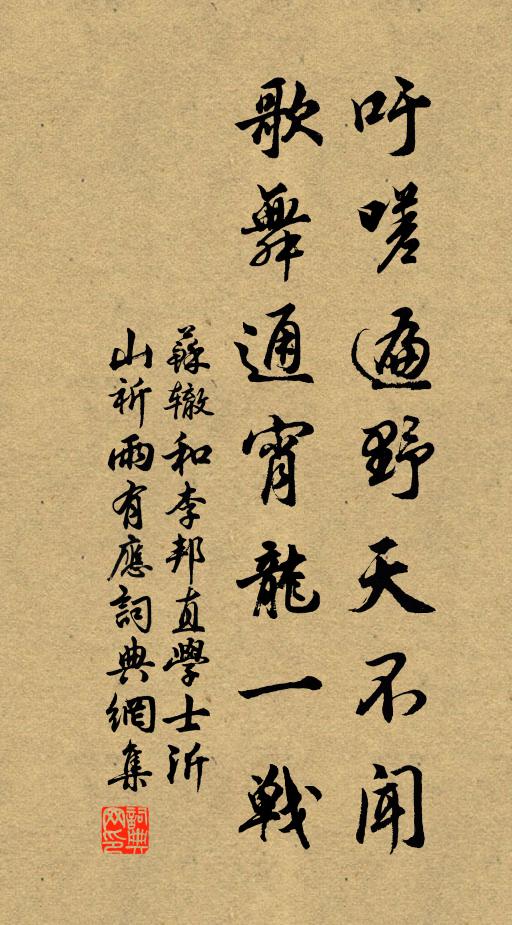 吁嗟遍野天不闻
歌舞通宵龍一戦
蘇辙和李邦直學士沂
山祈雨有應詞典網集
詞典网印